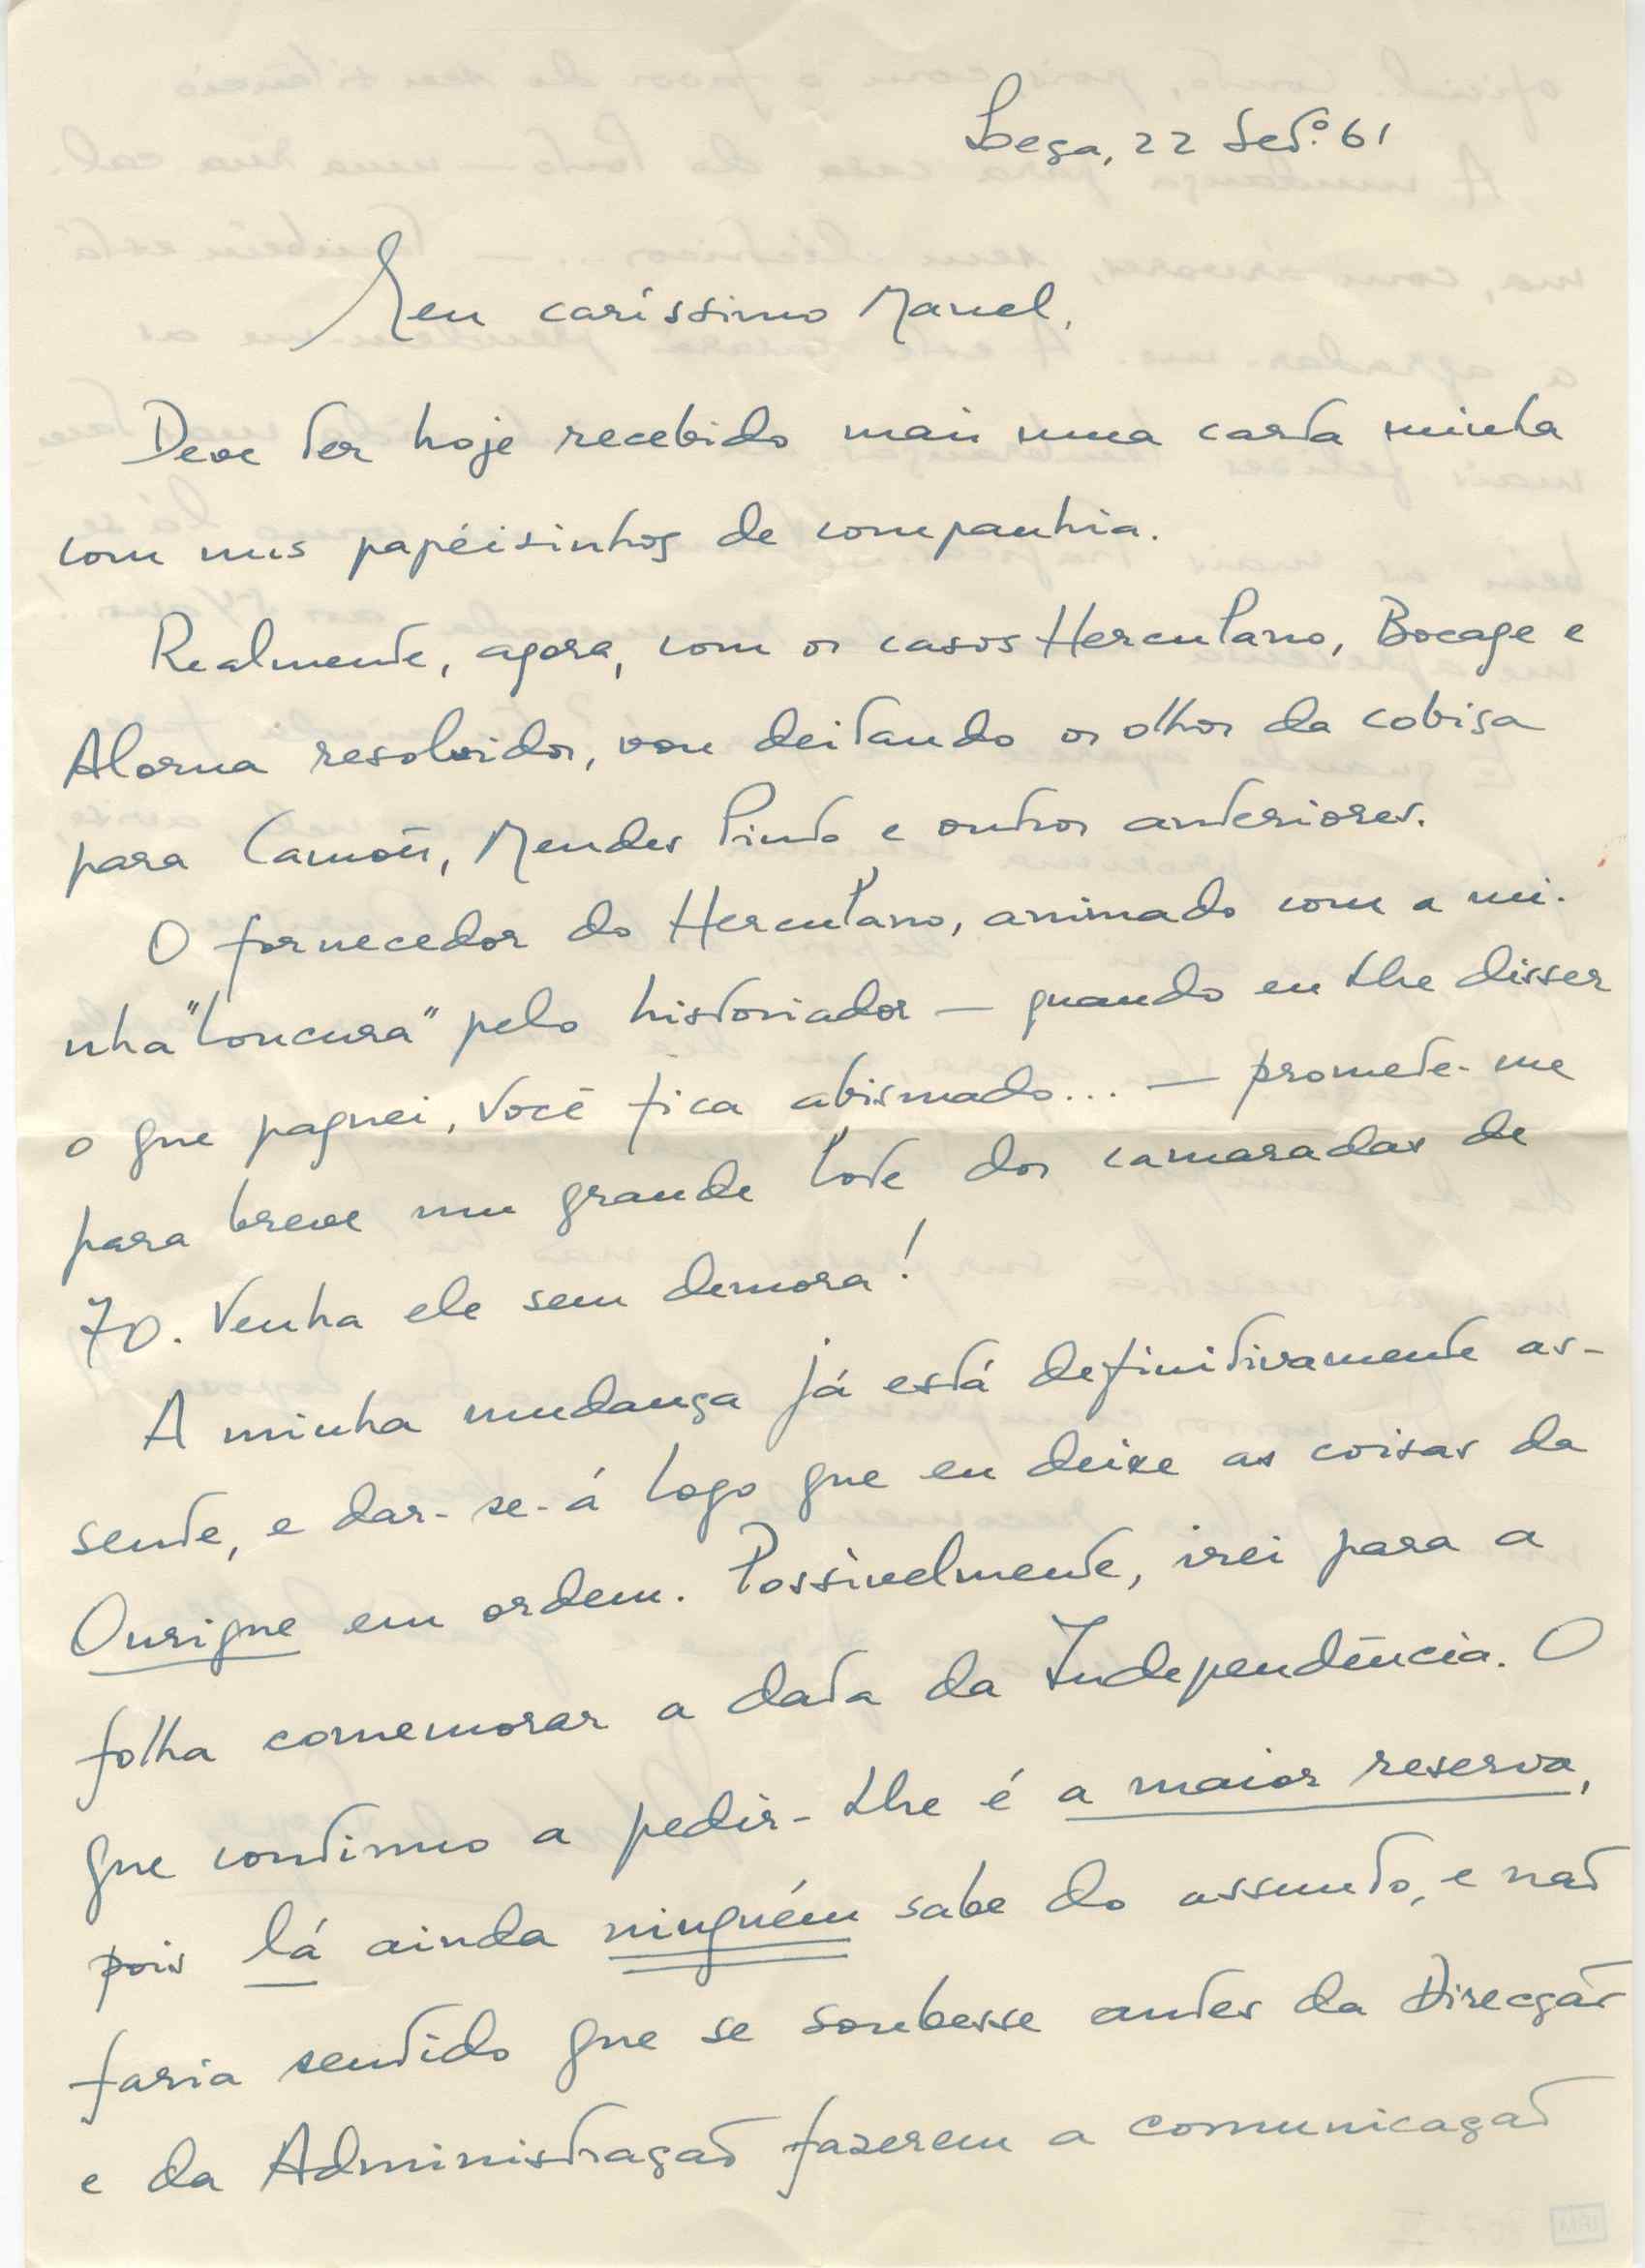 Leça, 22 Set.º 61
Meu caríssimo Manel,
Deve ter hoje recebido mais uma carta minha
com uns papéisinhos de companhia.
Realmente, agora, com os casos Herculano, Bocage e
Alorna resolvidos, vou deitando os olhos da cobiça
para Camões, Mendes Pinto e outros anteriores.
O fornecedor do Herculano, animado com a mi-
nha "loucura" pelo historiador — quando eu lhe disser
o que paguei, Você fica abismado... — promete-me
para breve um grande lote dos camaradas de
70. Venha ele sem demora!
A minha mudança já está definitivamente as-
sente, e dar-se-á logo que eu deixe as coisas da
Ourique em ordem. Possivelmente, irei para a
folha comemorar a data da Independência. O
que continuo a pedir-lhe é a maior reserva,
pois lá ainda ninguém sabe do assunto, e não
faria sentido que se soubesse antes da Direcção
e da Administração fazerem a comunicação